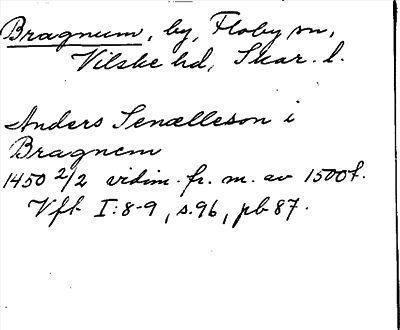 Bragnum, by, Floby sn,
Vilske hd, Skar. l.
Anders Senælleson i
Bragnem
1450 2/2 vidim. fr. m. av 1500t.
Vft I:8-9, s.96, pb 87.